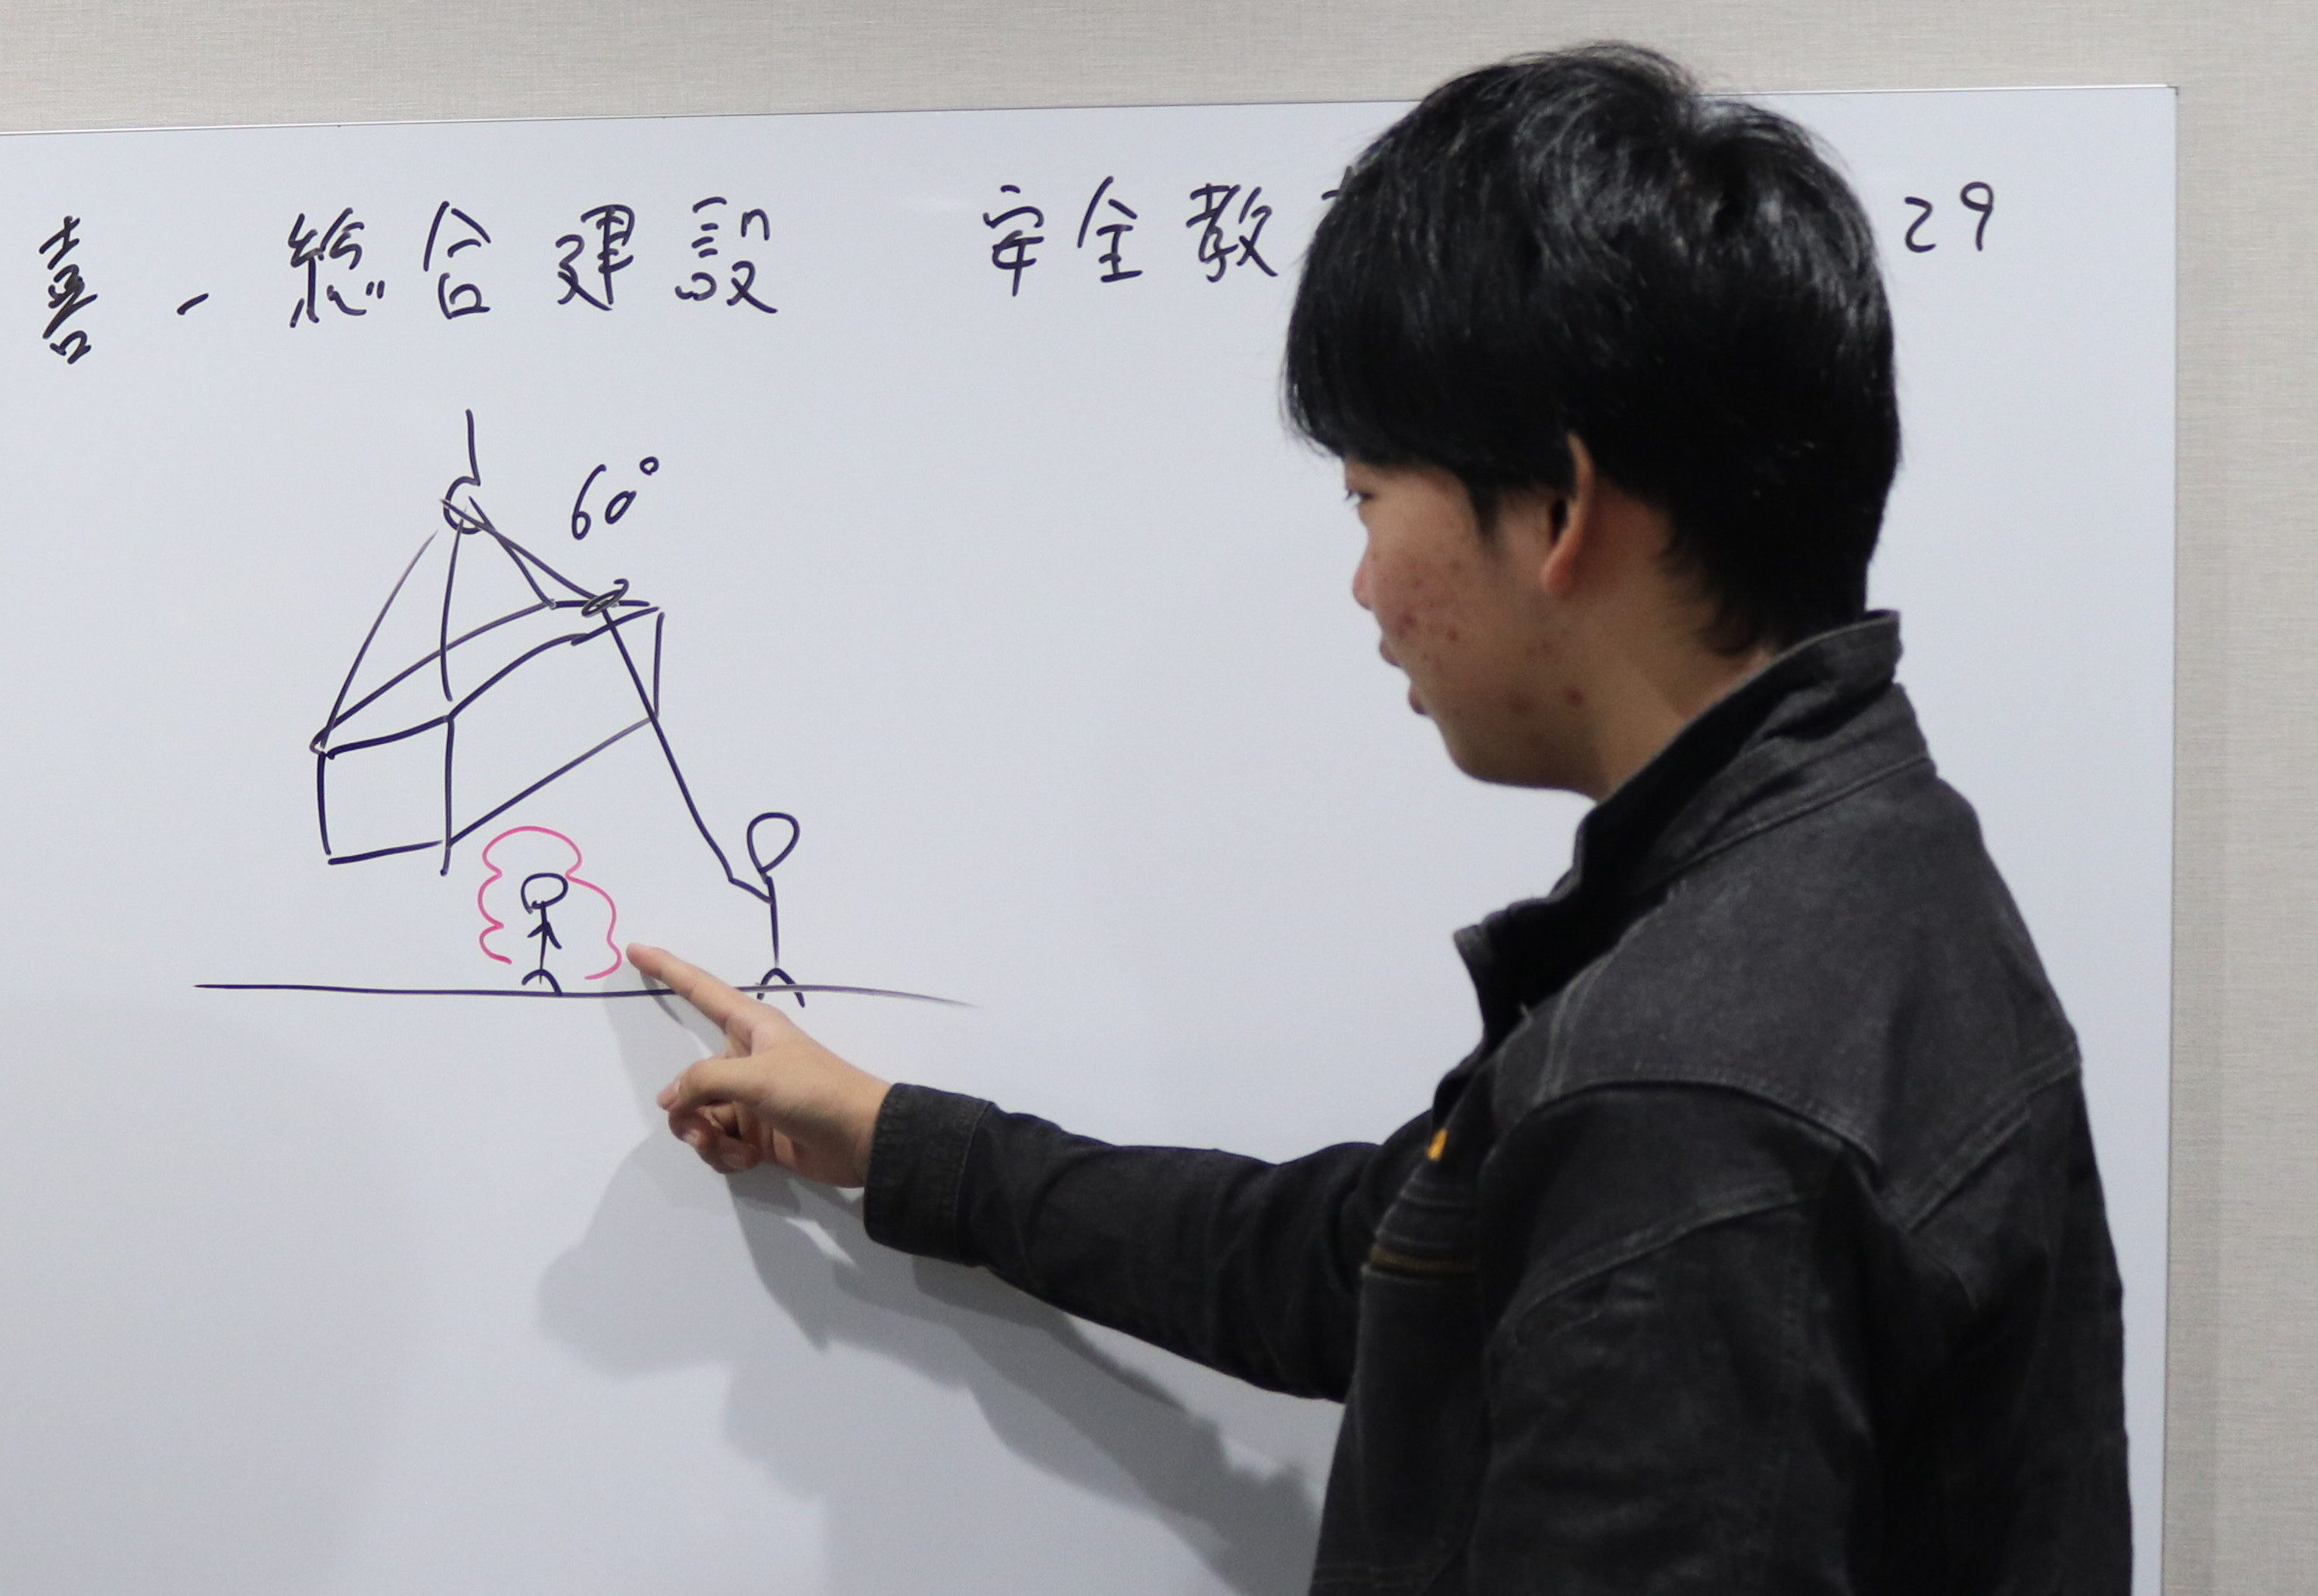 喜一総合建設 安全教 29
60°